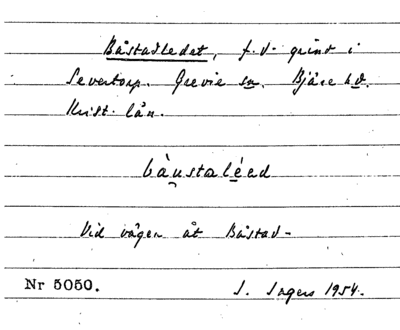 Båstadledet, f.d. grind i
Severtorp. Grevie sn. Bjäre hd.
Krist. län.
bàustaléed
Vid vägen åt Båstad-
Nr 5050.
J. Ingers 1954.